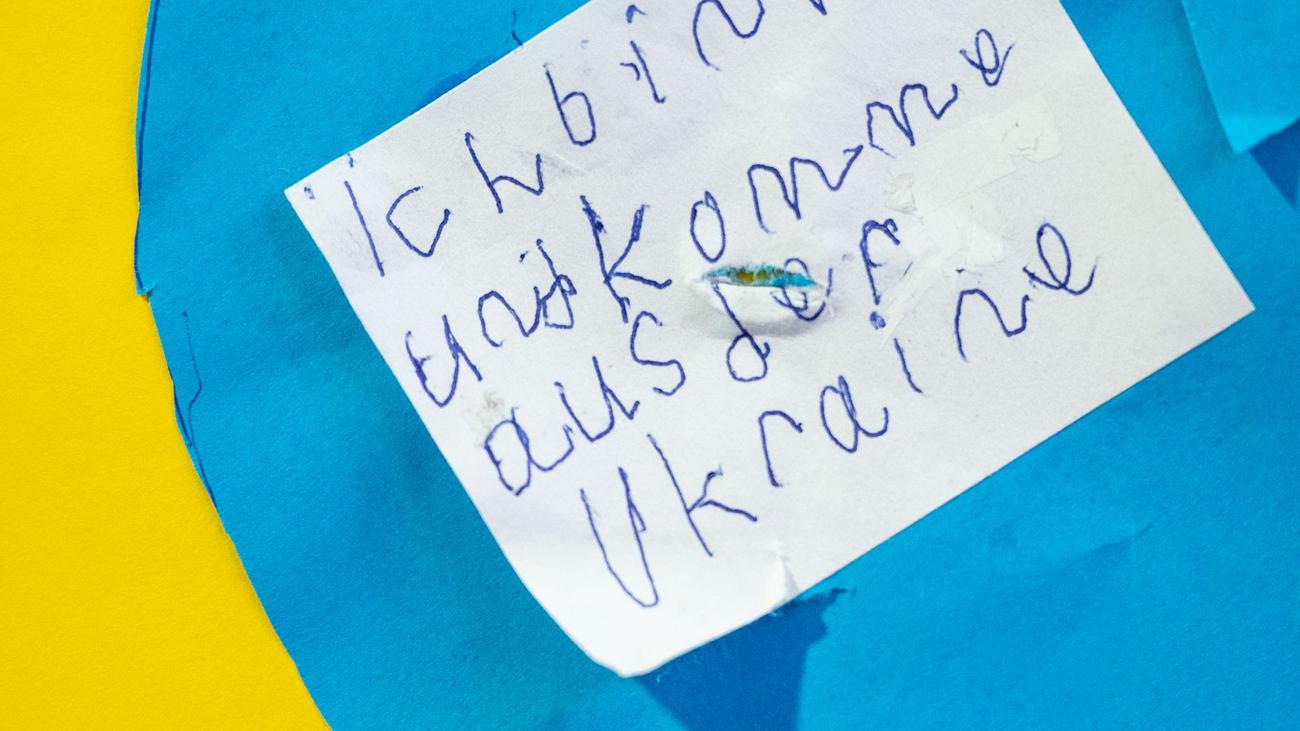 Ich bin
und komme
aus der
Ukraine